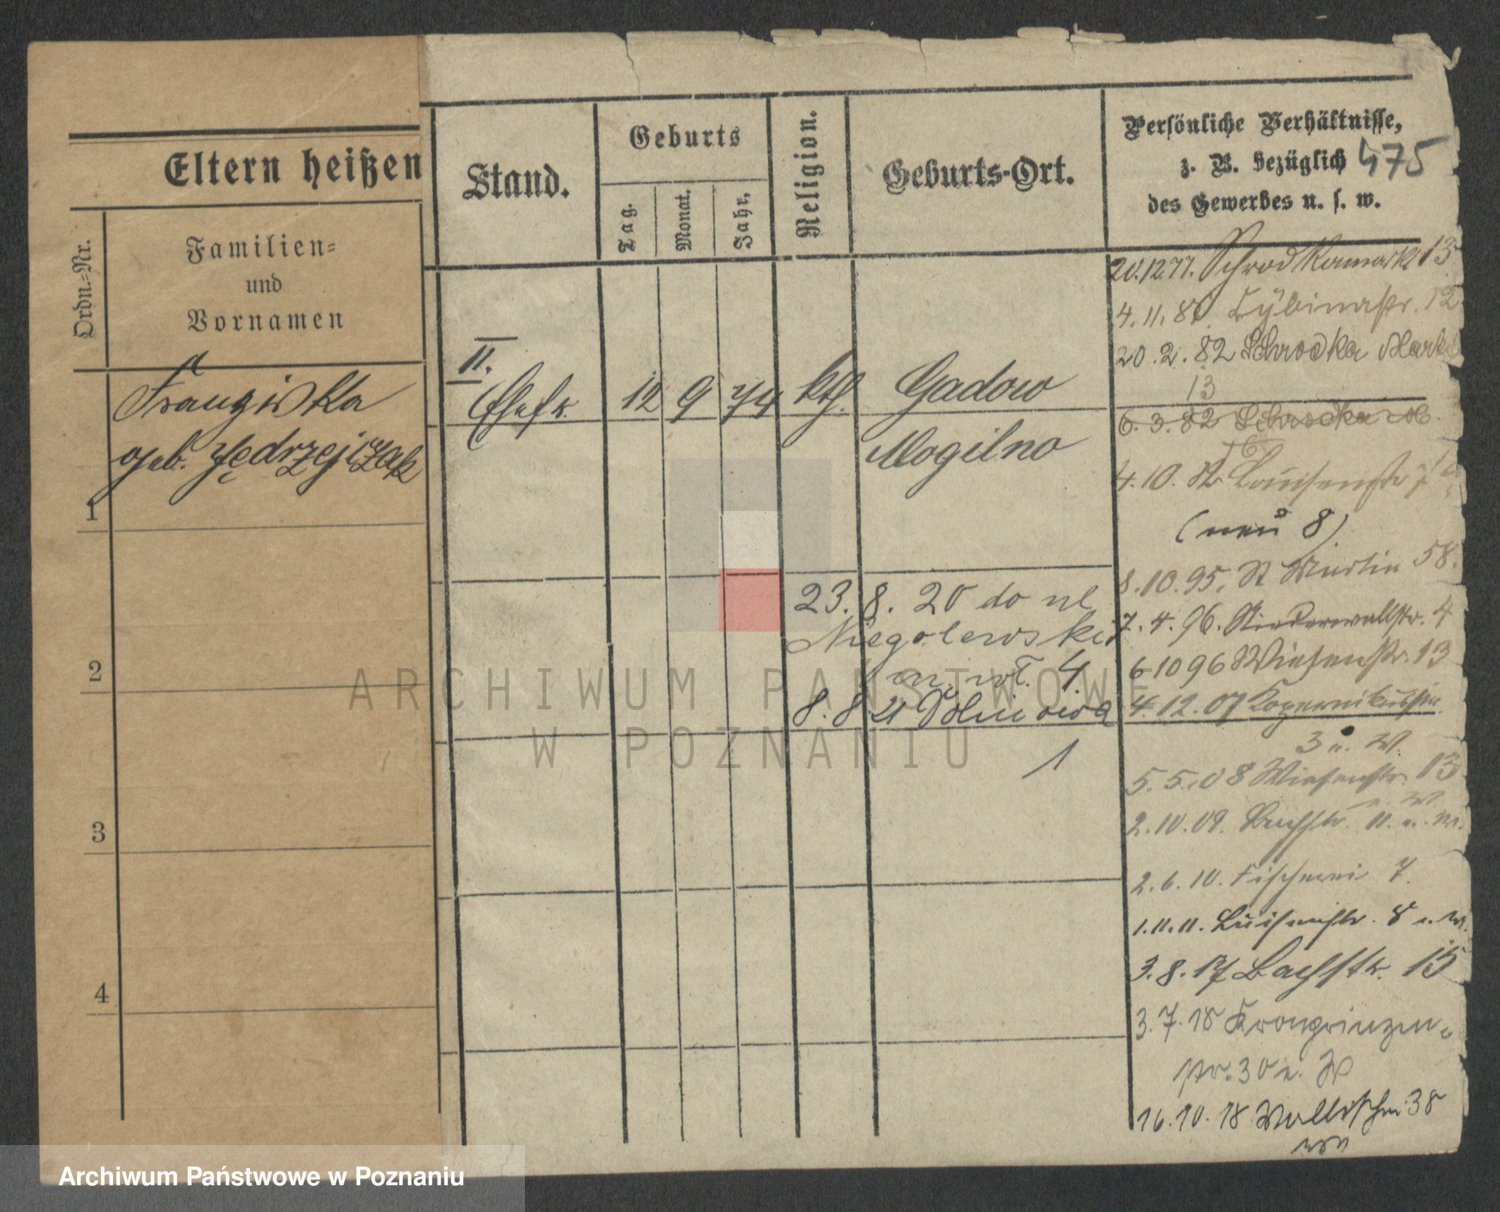 Eltern heißen
Ordn.-Nr.
Familien-
und
Vornamen
Stand.
Geburts
Tag.
Monat.
Jahr.
Religion.
Geburts-Ort.
Persönliche Verhältnisse,
z. B. bezüglich 475
des Gewerbes u. s. w.
Franziska
geb. Jędrzejczak
1
2
3
4
II.
Ehefr. 12 9 74 kth. Gadow
Mogilno
23. 8. 20 do ul
Niegolewski
4
8. 8 21
1
20.12.77. Schrodkamarkt 13
4. 11. 80 Cybinastr. 12
20. 2. 82 Schrodka Markt
13
6. 3. 82 Schrodka M.
16
4. 10. 82 Louisenstr 7
(neu 8)
8. 10. 95. St Martin 58.
7. 4. 96. Niederwallstr. 4
6 10 96 Wiesenstr. 13
4. 12. 07 Kopernikusstr.
3 u. W.
5. 5. 08 Wiesenstr. 13
2. 10. 09. Bachstr. 11. u. W.
2. 6. 10. Fischerei 7.
1. 11. 11. Luisenstr. 8 u. W.
3. 8. 17 Bachstr. 15
3. 7. 18 Kronprinzen-
str. 30 u. W
16. 10. 18 Wallischei 38
ARCHIWUM PAŃSTWOWE
W POZNANIU
Archiwum Państwowe w Poznaniu